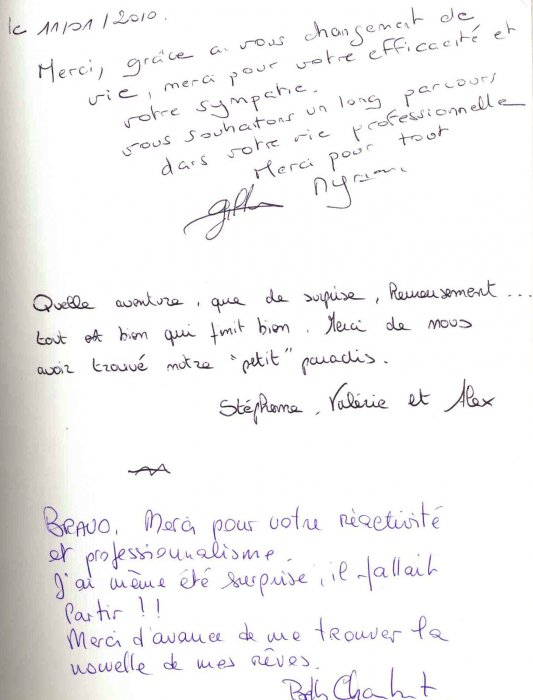 le 11/01/2010.
Merci, grâce a vous changement de
vie, merci pour votre efficacité et
votre sympatie.
vous souhaitons un long parcours
dans votre vie professionnelle
Merci pour tout
Quelle aventure, que de surprise, Heureusement...
tout est bien qui finit bien. Merci de nous
avoir trouvé notre "petit" paradis.
Stéphane, Valérie et Alex
BRAVO. Merci pour votre réactivité
et professionnalisme.
J'ai même été surprise, il fallait
Partir !!
Merci d'avance de me trouver la
nouvelle de mes rêves.